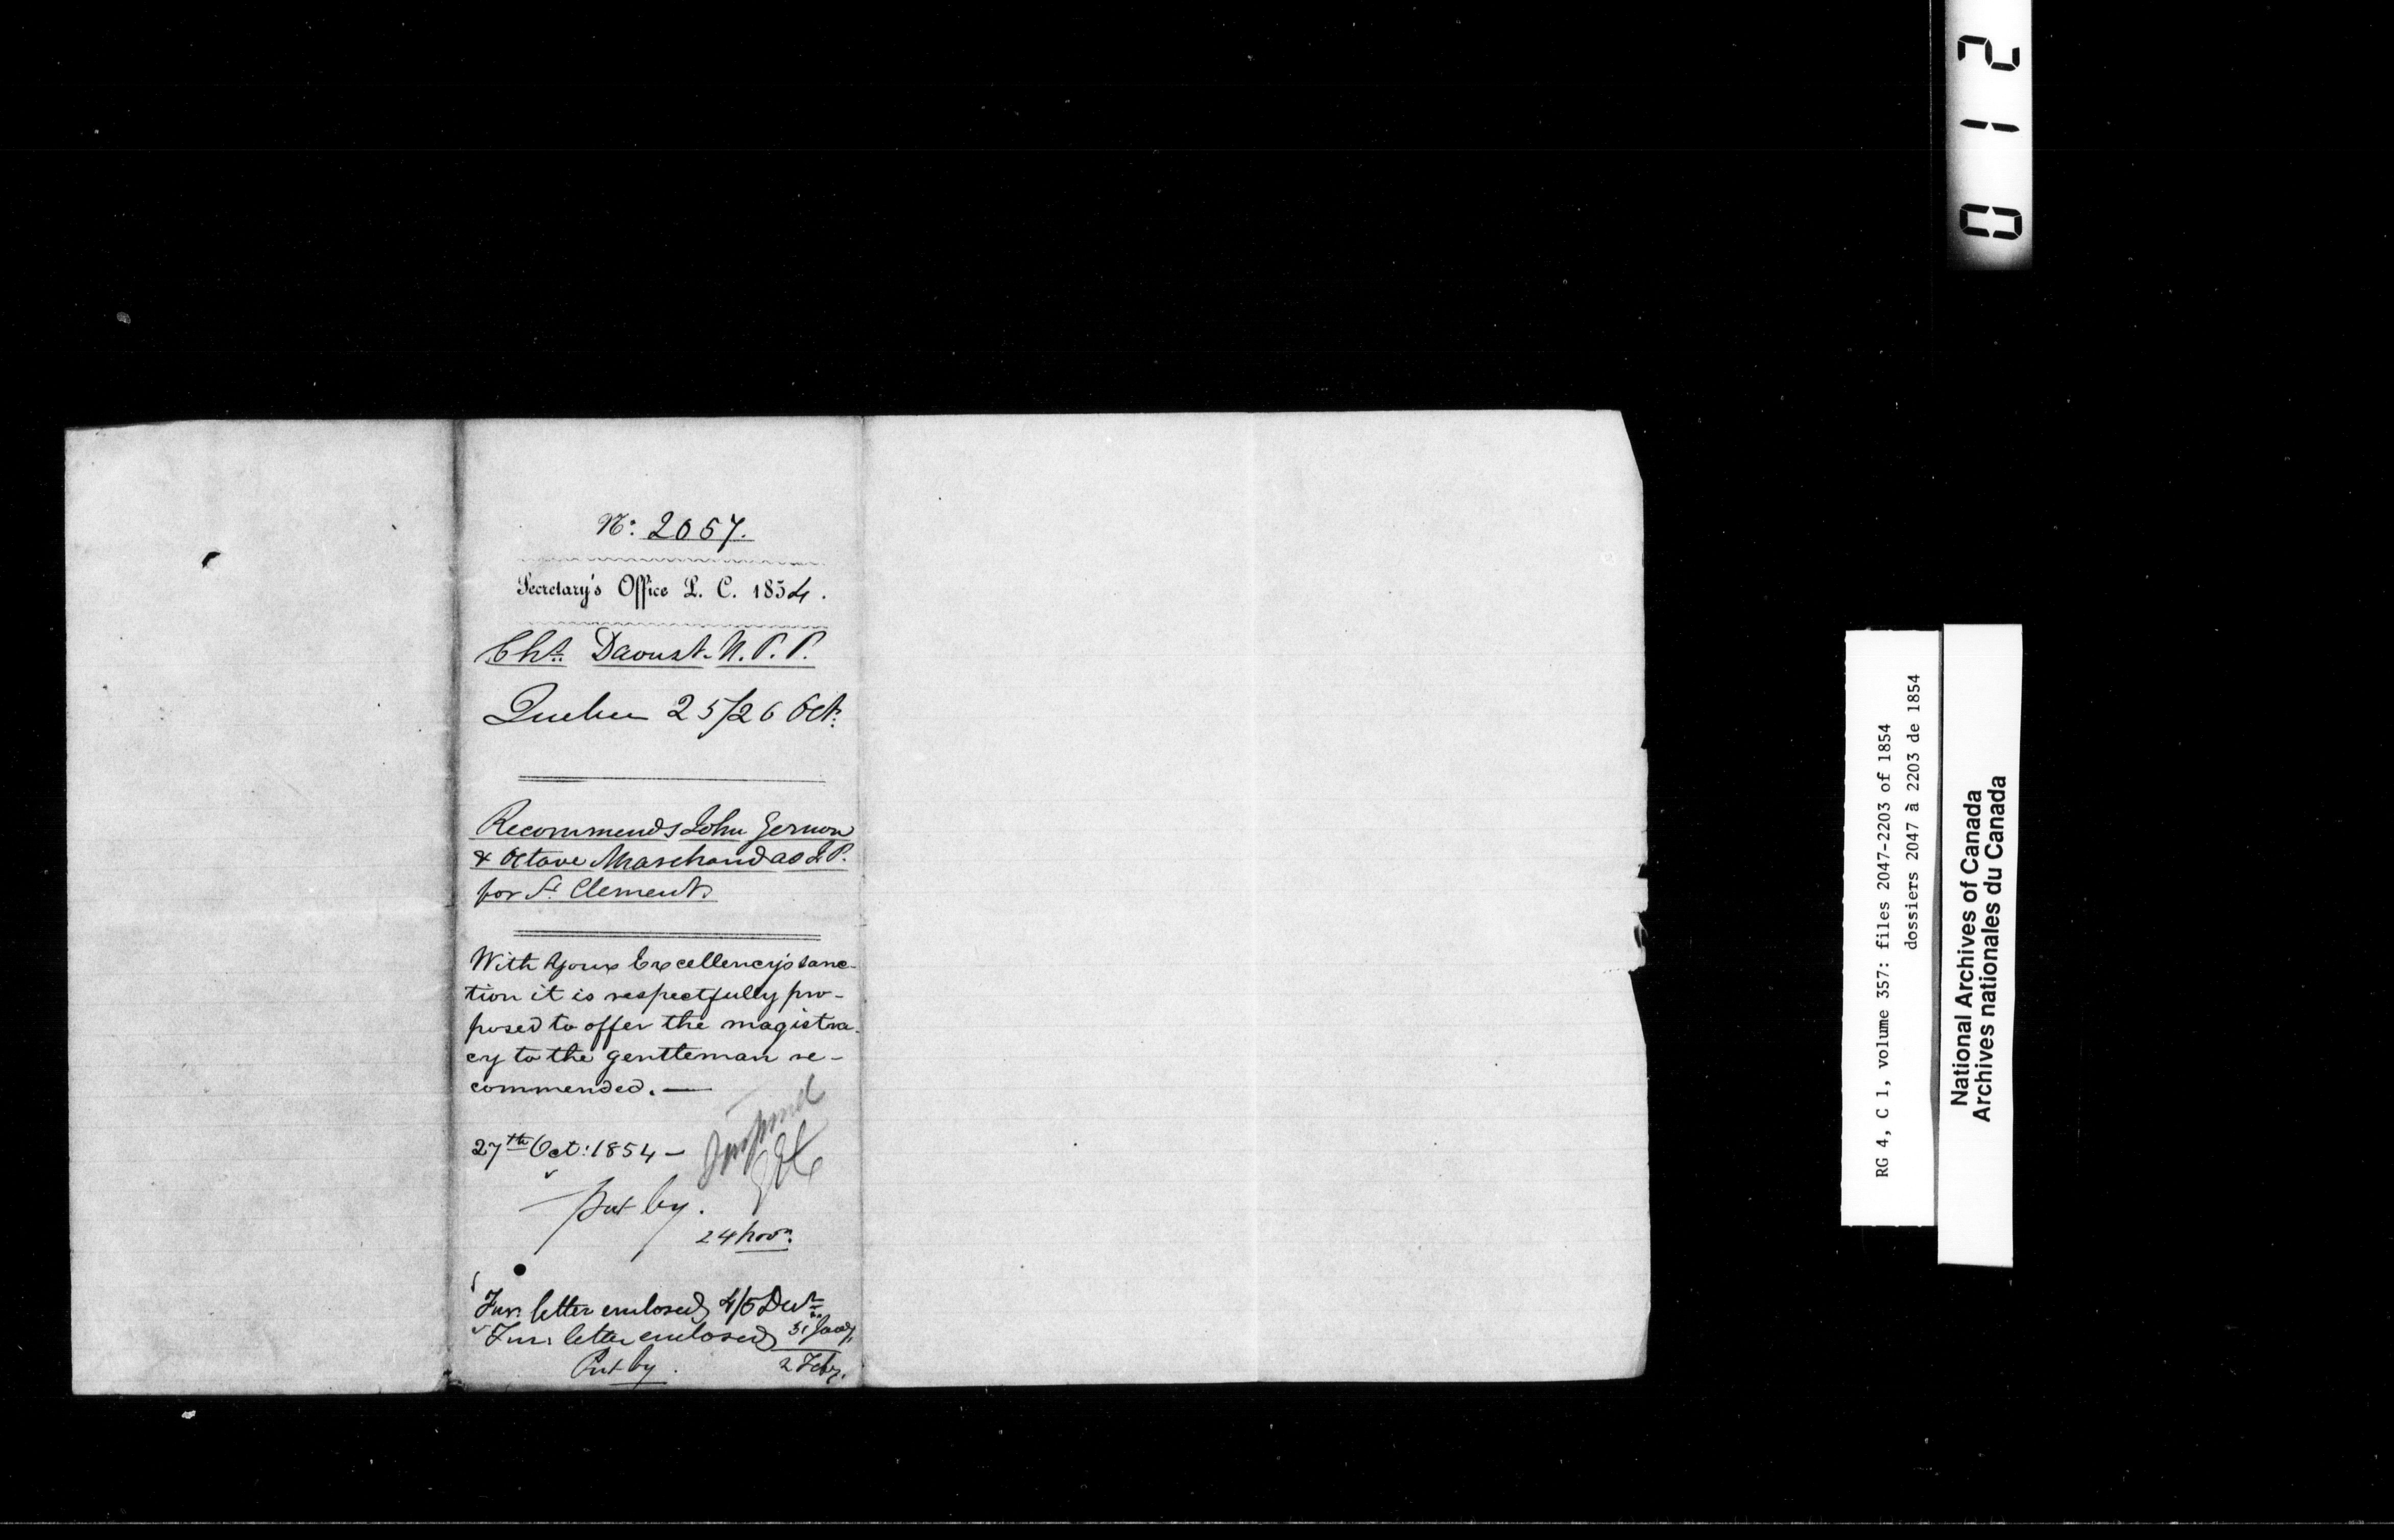 No: 2057.
Secretary's Office L. C. 1854.
Chs. Daoust. M.P.P.
Quebec 25/26 Oct:
Recommends John Gernon
& Octave Marchand as J.P.
for St. Clement.
With Your Excellency's sanc-
tion it is respectfully pro-
posed to offer the magistra-
cy to the gentleman re-
commended. —
27th Oct: 1854 —
put by.
24 Novr.
Fur: letter enclosed 4/5 Decr.
Fur: letter enclosed 31 Jany.
Put by. 2 Feby.
012
RG 4, C 1, volume 357: files 2047-2203 of 1854
dossiers 2047 à 2203 de 1854
National Archives of Canada
Archives nationales du Canada